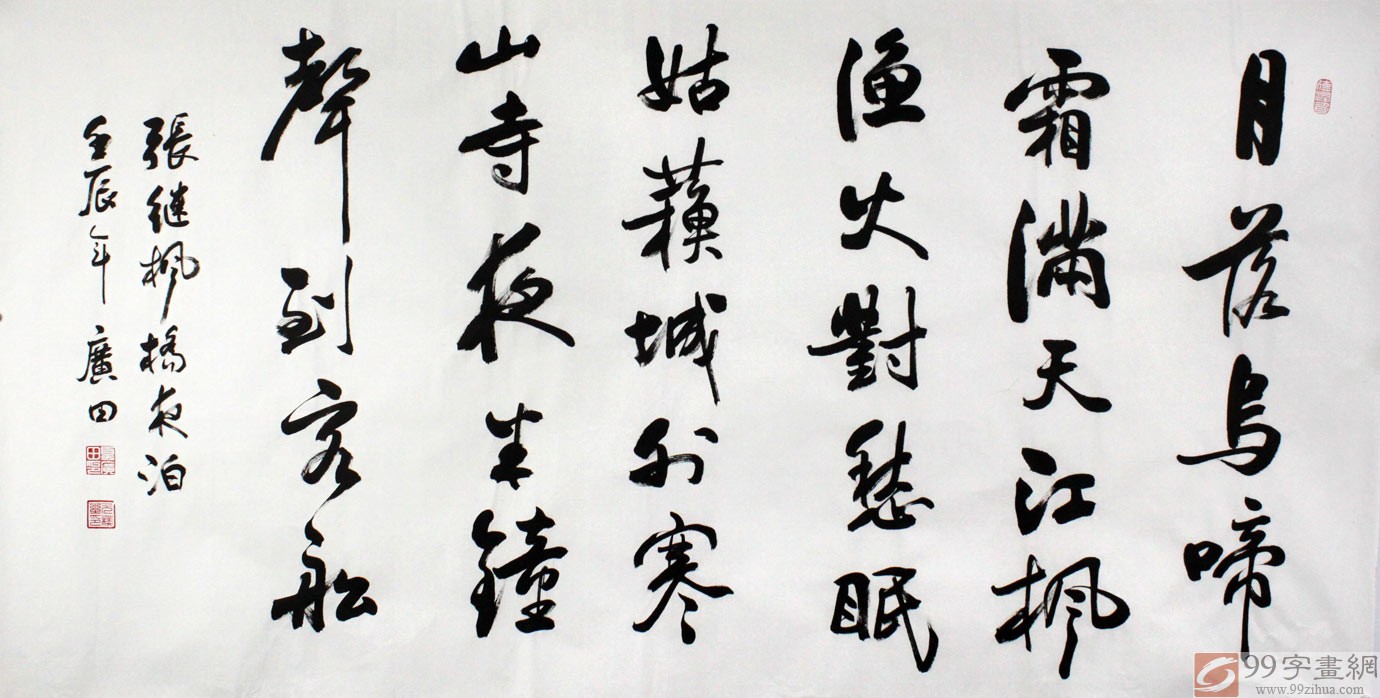 月落烏啼
霜滿天江楓
漁火對愁眠
姑蘇城外寒
山寺夜半鐘
聲到客船
張继楓橋夜泊
壬辰年 廣田
99字畫網
www.99zihua.com